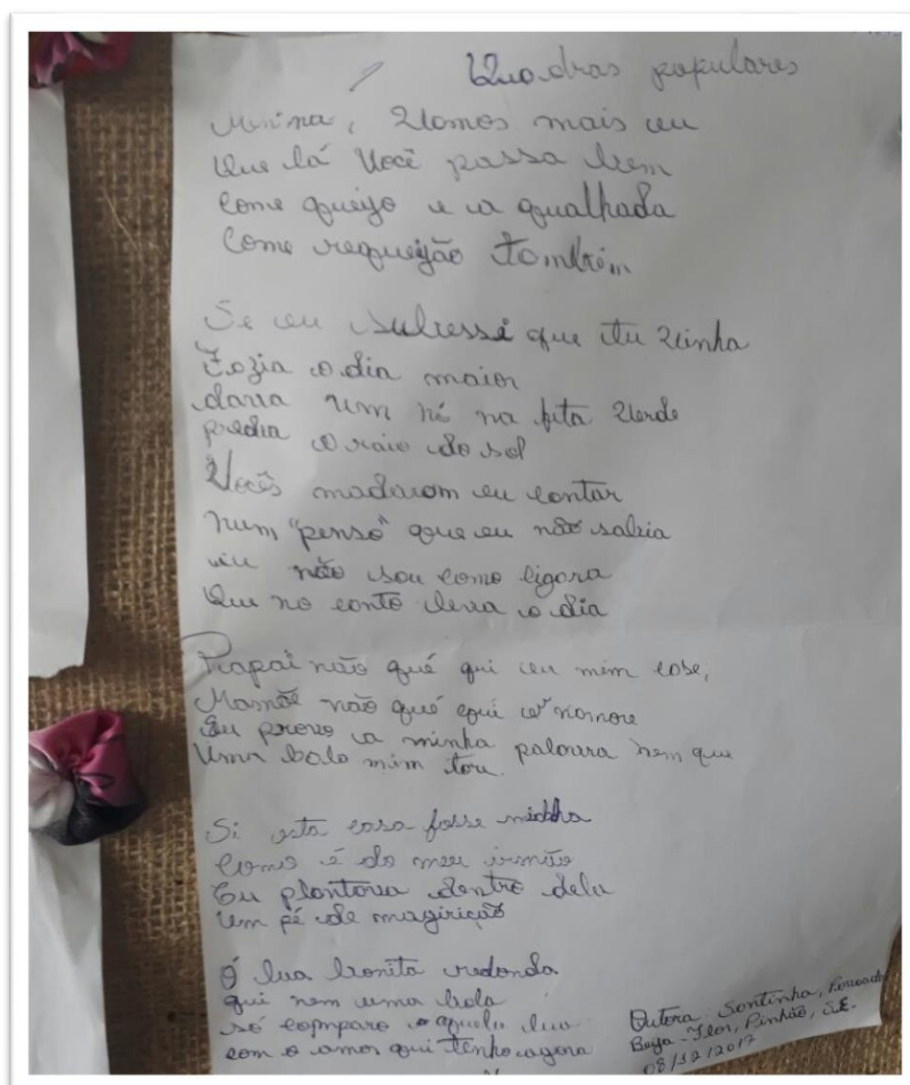 Quadras populares
Menina, Vamos mais eu
Que lá Você passa bem
Come queijo e a qualhada
Come requeijão Também
Se eu subesse que tu vinha
Fazia o dia maior
daria um nó na fita Verde
predia o raio do sol
Vocês madaram eu cantar
num "penso" que eu não sabia
eu não sou como cigara
Que no canto leva o dia
Papai não qué qui eu mim case,
Mamãe não qué qui eu namore
Eu provo a minha palavra nem que
Uma bala mim tore.
Si esta casa fosse minha
Como é do meu irmão
Eu plantava dentro dela
Um pé de magiricão
Ó lua bonita redonda
qui nem uma bola
só comparo aquela lua
com o amor qui tenho agora
Autora Santinha, Povoado
Beija-Flor, Pinhão, S.E.
08/12/2017